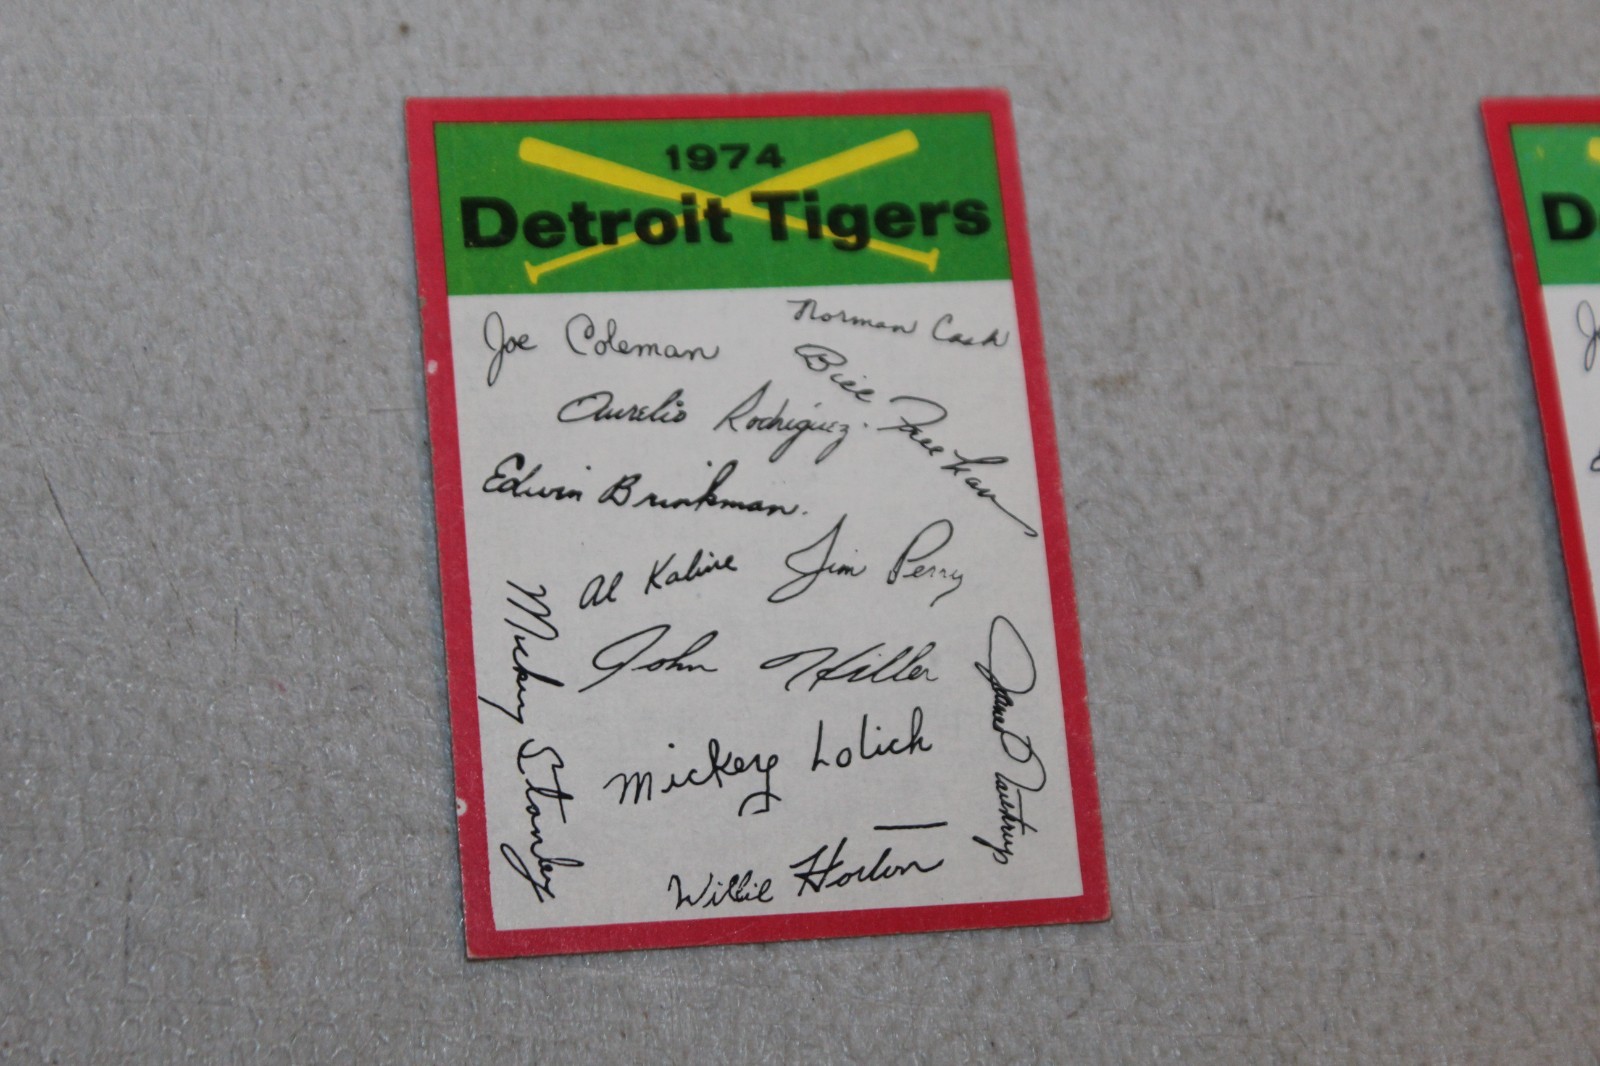 1974
Detroit Tigers
Joe Coleman
Norman Cash
Bill Freehan
Aurelio Rodriguez.
Edwin Brinkman.
Al Kaline
Jim Perry
Mickey Stanley
John Hiller
James Northrup
Mickey Lolich
Willie Horton
D